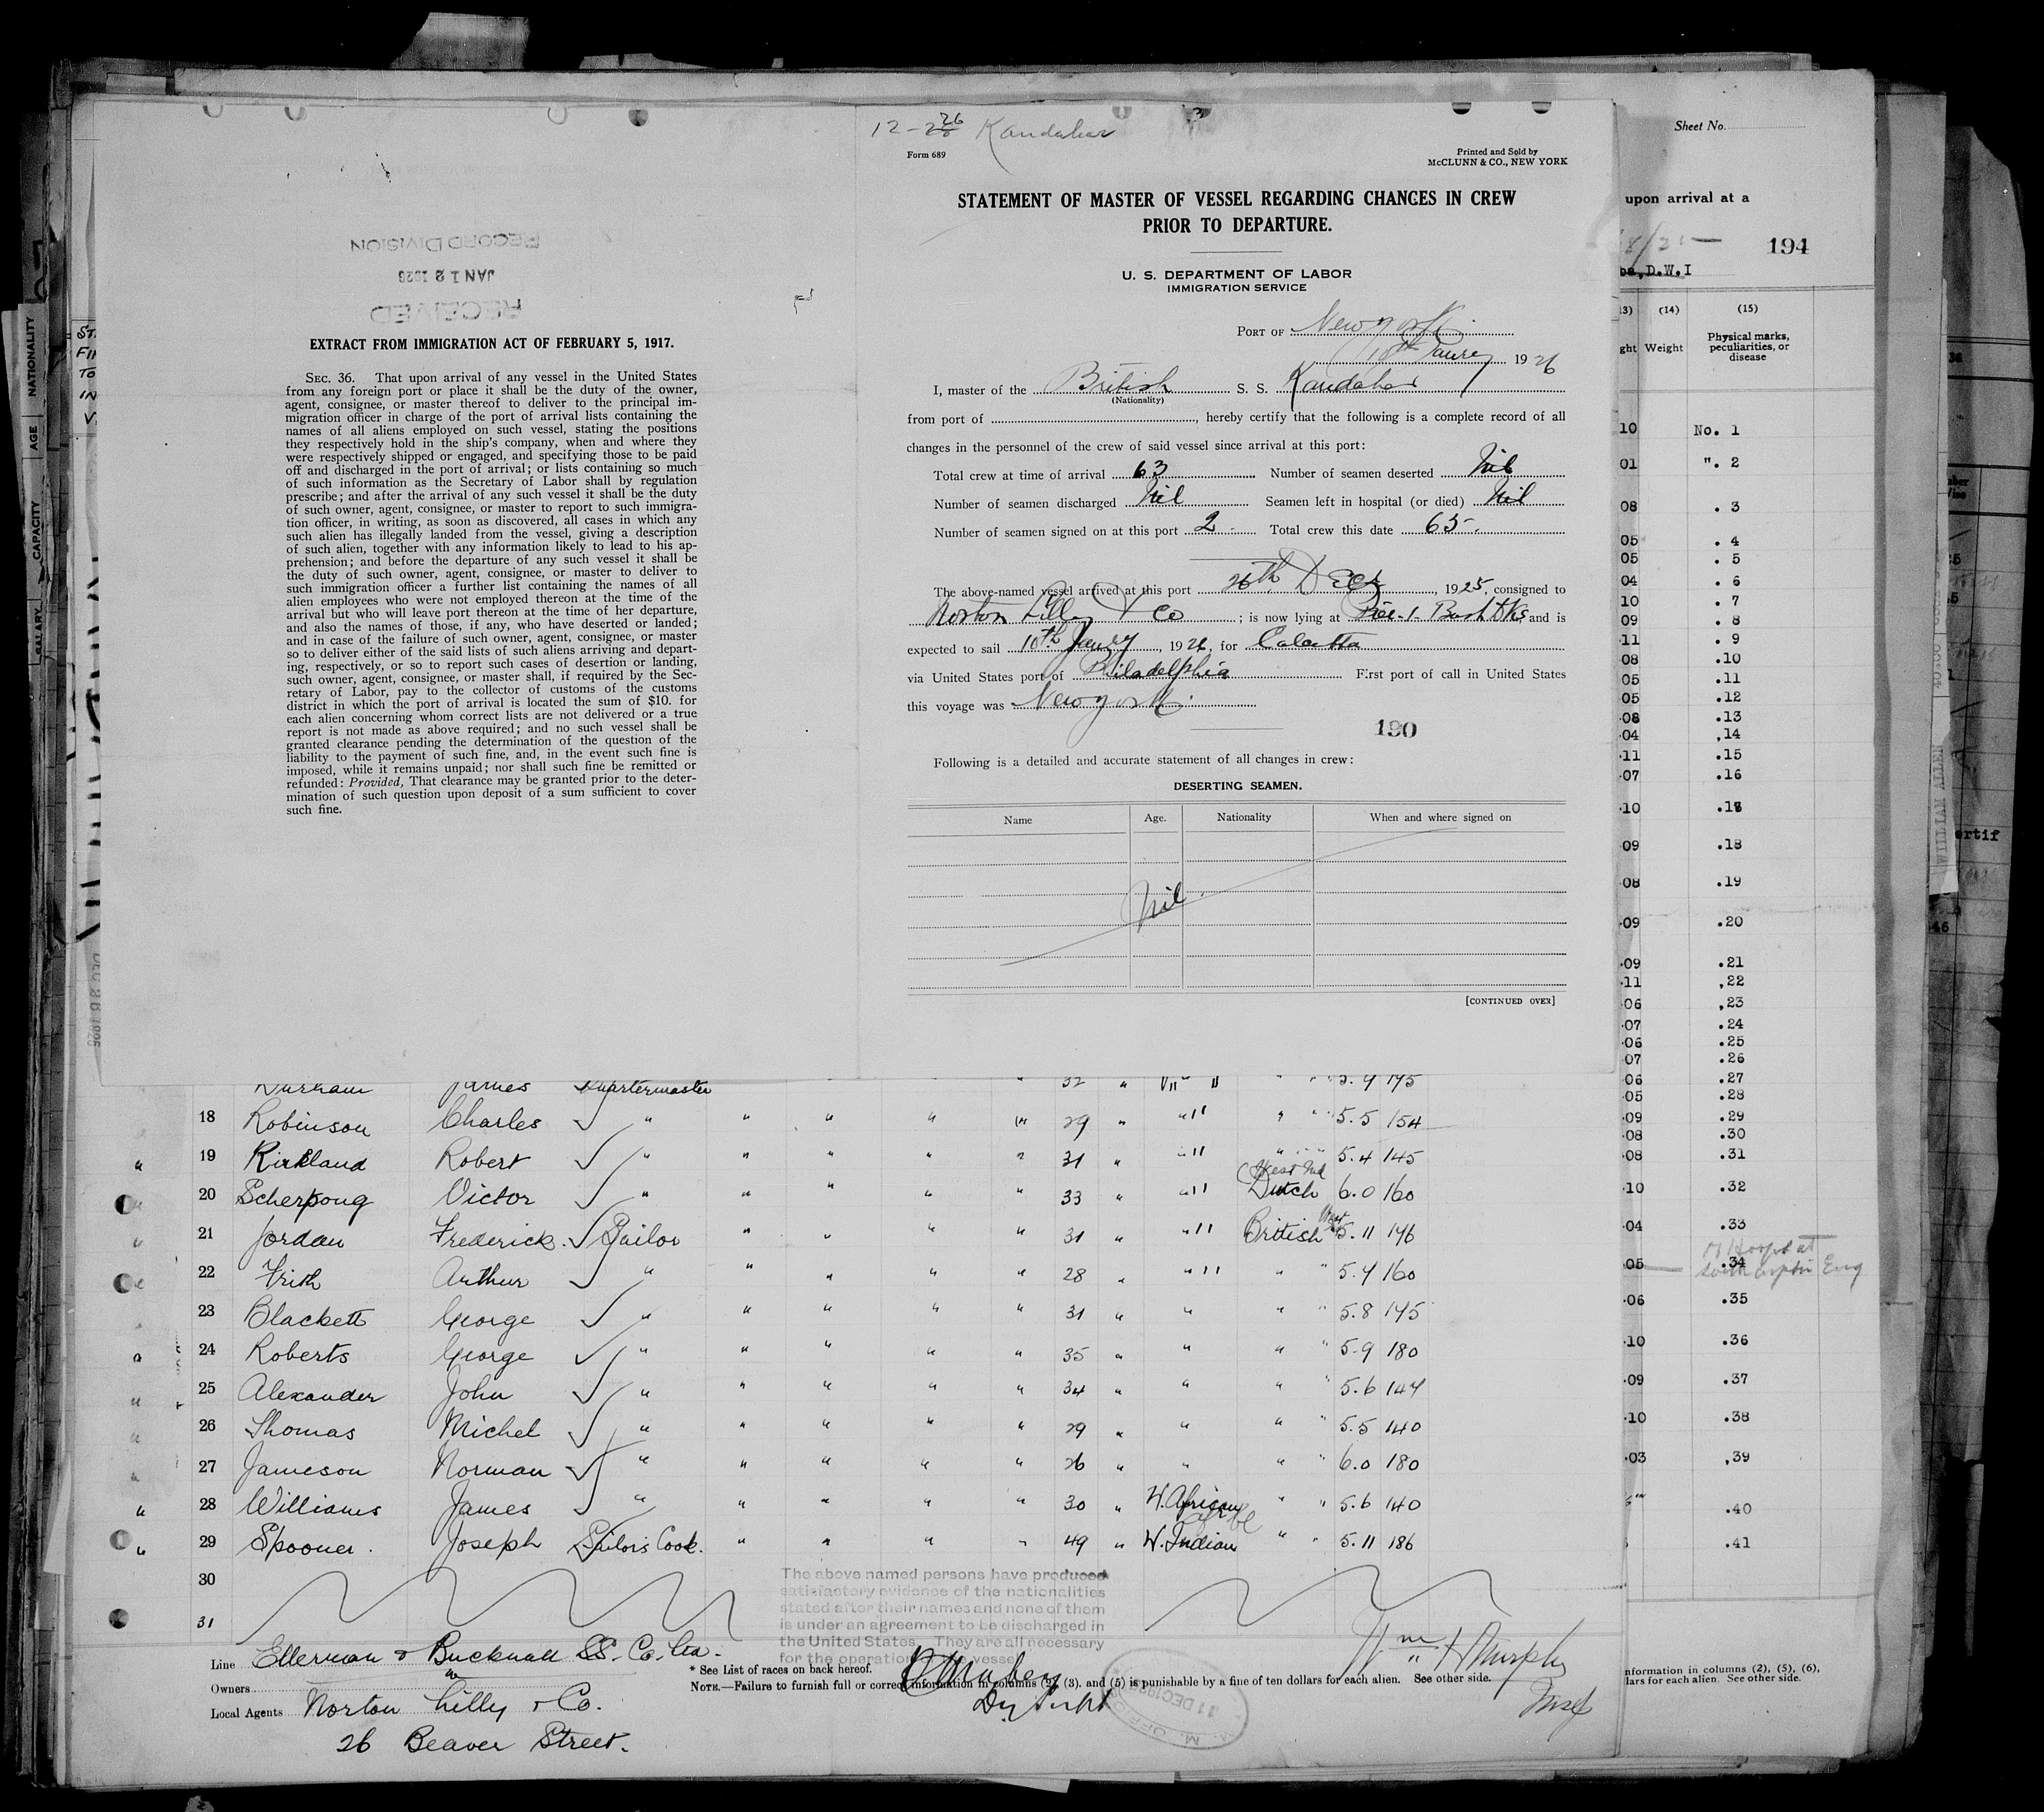 12-26 Kandahar
Form 689
Printed and Sold by
McCLUNN & CO., NEW YORK
STATEMENT OF MASTER OF VESSEL REGARDING CHANGES IN CREW
PRIOR TO DEPARTURE.
U. S. DEPARTMENT OF LABOR
IMMIGRATION SERVICE
PORT OF New York
10th Janry 1926
I, master of the British S. S. Kandahar
(Nationality)
from port of , hereby certify that the following is a complete record of all
changes in the personnel of the crew of said vessel since arrival at this port:
Total crew at time of arrival 63 Number of seamen deserted Nil
Number of seamen discharged Nil Seamen left in hospital (or died) Nil
Number of seamen signed on at this port 2 Total crew this date 65
The above-named vessel arrived at this port 26th Dec , 1925, consigned to
Norton Lilly & Co ; is now lying at Pier 1 Bush Dks and is
expected to sail 10th Janry , 1926, for Calcutta
via United States port of Philadelphia First port of call in United States
this voyage was New York
190
Following is a detailed and accurate statement of all changes in crew:
DESERTING SEAMEN.
Name Age. Nationality When and where signed on
Nil
[CONTINUED OVER]
RECORD DIVISION
JAN 12 1926
RECEIVED
EXTRACT FROM IMMIGRATION ACT OF FEBRUARY 5, 1917.
SEC. 36. That upon arrival of any vessel in the United States
from any foreign port or place it shall be the duty of the owner,
agent, consignee, or master thereof to deliver to the principal im-
migration officer in charge of the port of arrival lists containing the
names of all aliens employed on such vessel, stating the positions
they respectively hold in the ship's company, when and where they
were respectively shipped or engaged, and specifying those to be paid
off and discharged in the port of arrival; or lists containing so much
of such information as the Secretary of Labor shall by regulation
prescribe; and after the arrival of any such vessel it shall be the duty
of such owner, agent, consignee, or master to report to such immigra-
tion officer, in writing, as soon as discovered, all cases in which any
such alien has illegally landed from the vessel, giving a description
of such alien, together with any information likely to lead to his ap-
prehension; and before the departure of any such vessel it shall be
the duty of such owner, agent, consignee, or master to deliver to
such immigration officer a further list containing the names of all
alien employees who were not employed thereon at the time of the
arrival but who will leave port thereon at the time of her departure,
and also the names of those, if any, who have deserted or landed;
and in case of the failure of such owner, agent, consignee, or master
so to deliver either of the said lists of such aliens arriving and depart-
ing, respectively, or so to report such cases of desertion or landing,
such owner, agent, consignee, or master shall, if required by the Sec-
retary of Labor, pay to the collector of customs of the customs
district in which the port of arrival is located the sum of $10. for
each alien concerning whom correct lists are not delivered or a true
report is not made as above required; and no such vessel shall be
granted clearance pending the determination of the question of the
liability to the payment of such fine, and, in the event such fine is
imposed, while it remains unpaid; nor shall such fine be remitted or
refunded: Provided, That clearance may be granted prior to the deter-
mination of such question upon deposit of a sum sufficient to cover
such fine.
Sheet No.
upon arrival at a
194
D.W.I
(14) (15)
Weight Physical marks,
peculiarities, or
disease
10 No. 1
01 ". 2
08 . 3
05 . 4
05 . 5
04 . 6
10 . 7
09 . 8
11 . 9
08 .10
05 .11
05 .12
08 .13
04 .14
11 .15
07 .16
10
09 .18
08 .19
09 .20
09 .21
11 ,22
06 ,23
07 .24
06 .25
07 .26
06 .27
05 .28
09 .29
08 .30
08 .31
10 .32
04 .33
05 .34
06 .35
10 .36
09 .37
10 .38
03 ,39
.40
.41
NATIONALITY
AGE
CAPACITY
SALARY
WILLIAM ALLEN
Durham James Quartermaster " 32 " " 5.9 175
18 Robinson Charles " " " " " 29 " " " " 5.5 154
19 Kirkland Robert " " " " " 31 " " " " 5.4 145
20 Scherpong Victor " " " " " 33 " " West Ind Dutch 6.0 160
21 Jordan Frederick Sailor " " " " 31 " " British West 5.11 176
22 Frith Arthur " " " " " 28 " " " " 5.7 160
23 Blackett George " " " " " 31 " " " " 5.8 175
24 Roberts George " " " " " 35 " " " " 5.9 180
25 Alexander John " " " " " 34 " " " " 5.6 147
26 Thomas Michel " " " " " 29 " " " " 5.5 140
27 Jameson Norman " " " " " 26 " " " " 6.0 180
28 Williams James " " " " " 30 " W. African " " 5.6 140
29 Spooner Joseph Sailors Cook " " " " 49 " W. Indian " " 5.11 186
30
31
The above named persons have produced
satisfactory evidence of the nationalities
stated after their names and none of them
is under an agreement to be discharged in
the United States. They are all necessary
for the operation of the vessel
Line Ellerman & Bucknall SS. Co. Ltd.
Owners "
Local Agents Norton Lilly & Co.
26 Beaver Street.
* See List of races on back hereof.
NOTE.—Failure to furnish full or correct information in columns (2), (3), and (5) is punishable by a fine of ten dollars for each alien. See other side.
Wm H Murphy
Insp
11 DEC 192
nformation in columns (2), (5), (6),
lars for each alien. See other side.